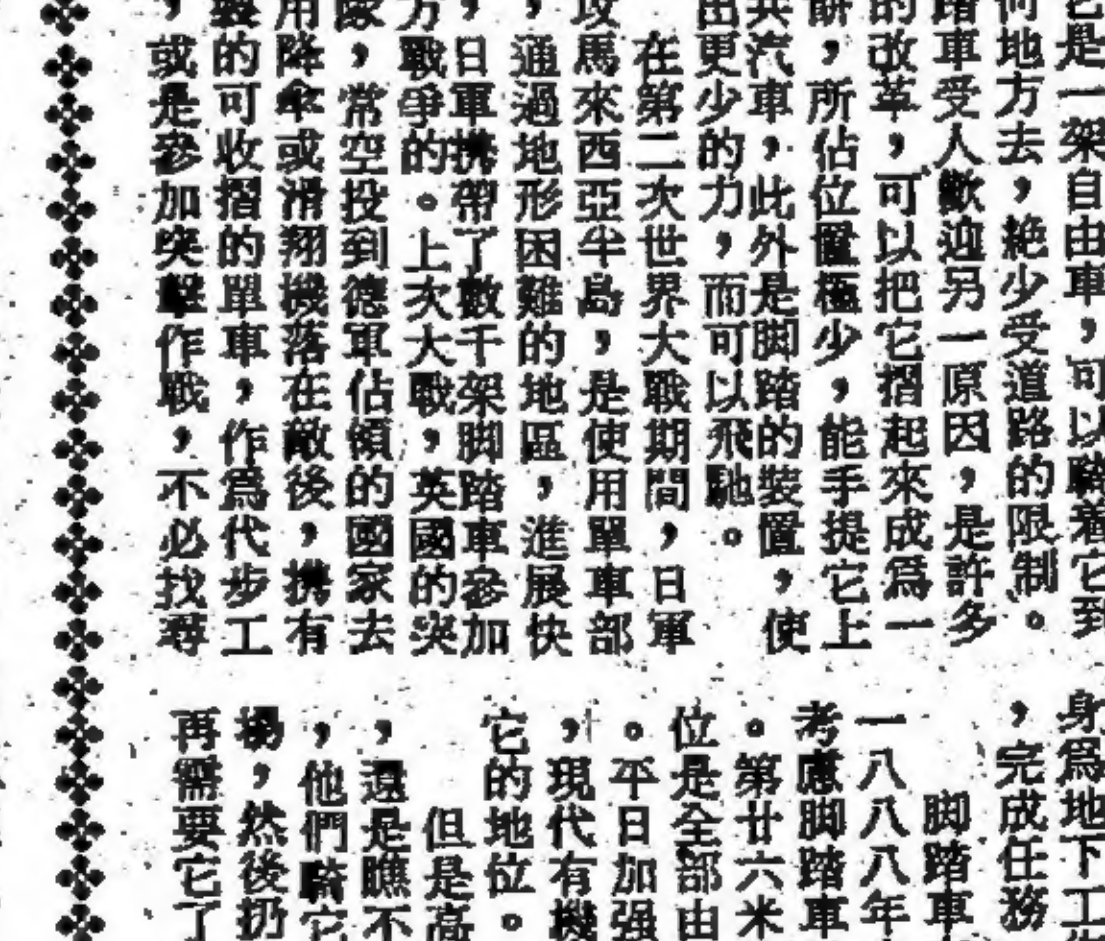 它是一架自由車，可以騎着它到
何地方去，絕少受道路的限制。
踏車受人歡迎另一原因，是許多
的改革，可以把它摺起來成爲一
，所佔位置極少，能手提它上
共汽車，此外是脚踏的裝置，使
出更少的力，而可以飛馳。
在第二次世界大戰期間，日軍
攻馬來西亞半島，是使用單車部
，通過地形困難的地區，進展快
，日軍携帶了數千架脚踏車參加
方戰爭的。上次大戰，英國的突
隊，常空投到德軍佔領的國家去
用降傘或滑翔機落在敵後，携有
製的可收摺的單車，作爲代步工
，或是參加突擊作戰，不必找尋
身爲地下工作
，完成任務
脚踏車
一八八八年
考慮脚踏車
。第廿六米
位是全部由
。平日加强
，現代有機
它的地位。
但是高
，還是瞧不
，他們騎它
場，然後扔
再需要它了